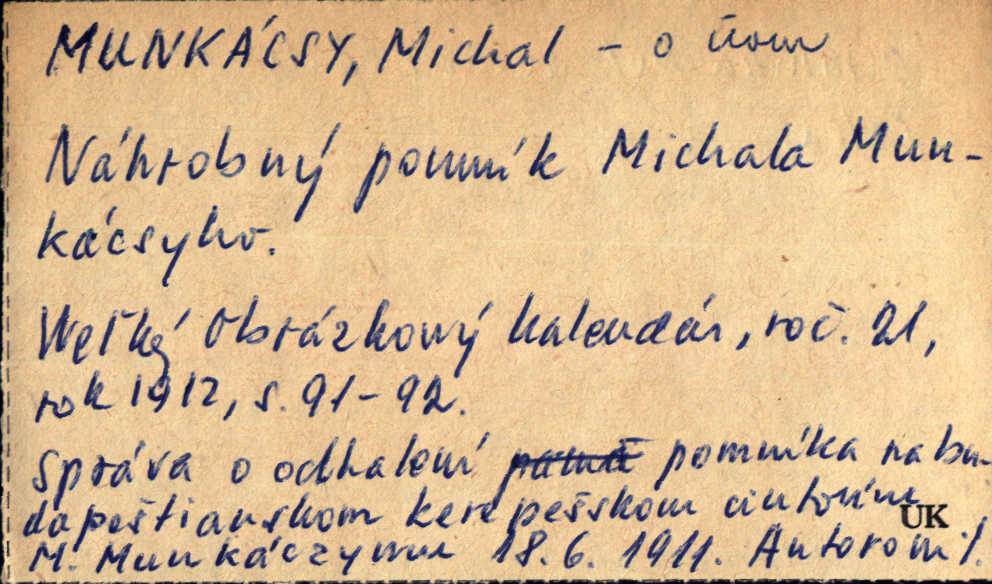 MUNKÁCSY, Michal - o ňom
Náhrobný pomník Michala Mun-
kácsyho.
Weľký Obrázkowý kalendár, roč. 21,
rok 1912, s. 91-92.
Správa o odhalení pomníka na bu-
dapeštianskom kerepešskom cintoríne
ÚK
M. Munkáczymu 18.6.1911. Autorom